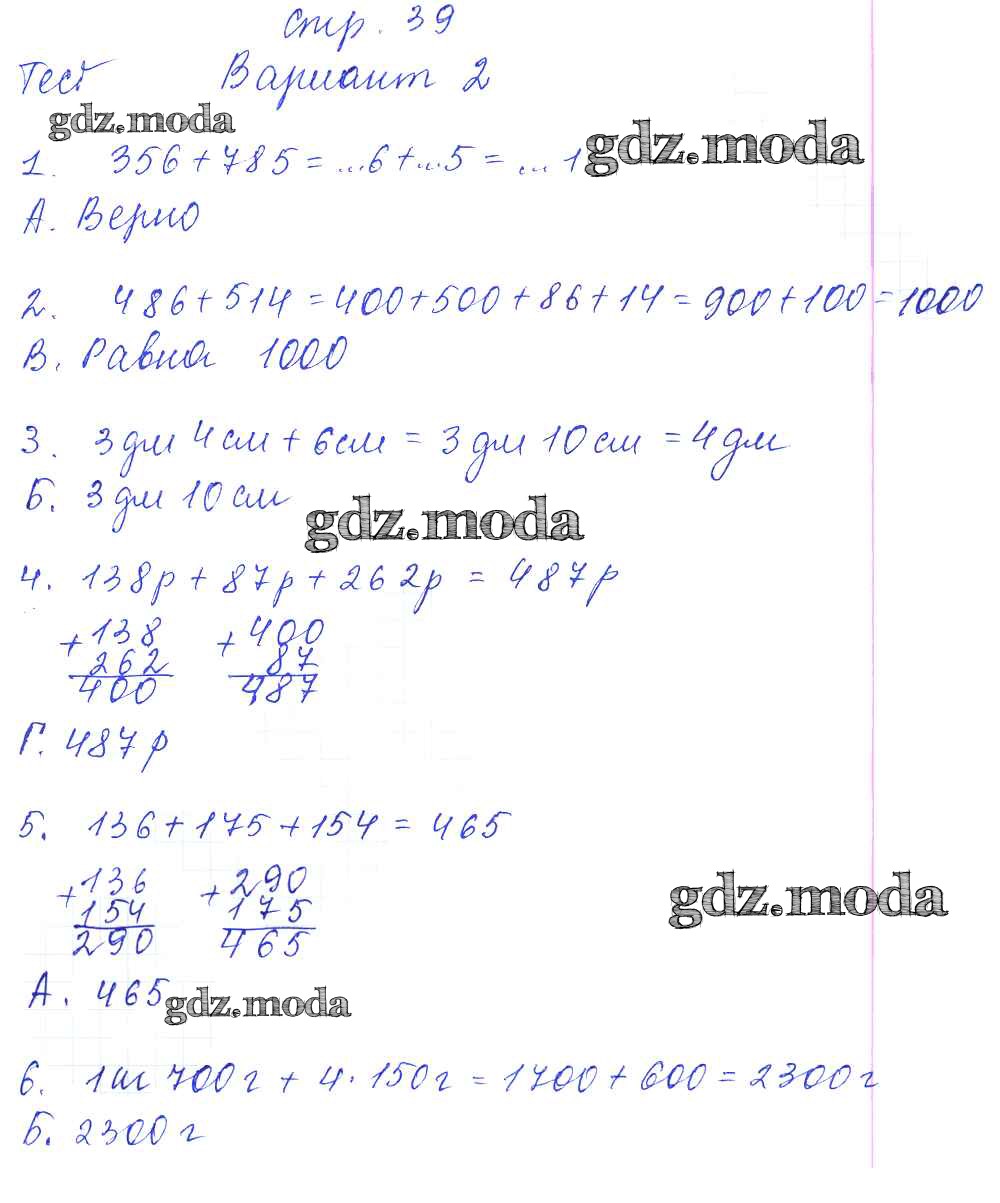 Стр. 39
Тест Вариант 2
gdz.moda
1. 356 + 785 = ...6 + ...5 = ... 1 gdz.moda
А. Верно
2. 486 + 514 = 400 + 500 + 86 + 14 = 900 + 100 = 1000
В. Равна 1000
3. 3 дм 4 см + 6 см = 3 дм 10 см = 4 дм
Б. 3 дм 10 см
gdz.moda
4. 138р + 87р + 262р = 487р
+ 138 + 400
262 87
400 487
Г. 487р
5. 136 + 175 + 154 = 465
+ 136 + 290
154 175
290 465
gdz.moda
А. 465 gdz.moda
6. 1 кг 700 г + 4 · 150 г = 1700 + 600 = 2300 г
Б. 2300 г